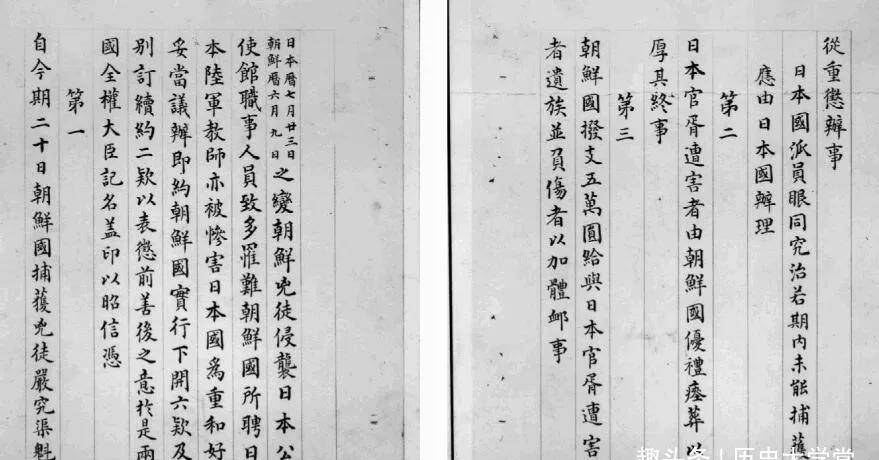 日本曆七月廿三日
朝鮮曆六月九日
之變朝鮮兇徒侵襲日本公
使館職事人員致多罹難朝鮮國所聘日
本陸軍教師亦被慘害日本國爲重和好
妥當議辦即約朝鮮國實行下開六欵及
別訂續約二欵以表懲前善後之意於是兩
國全權大臣記名盖印以昭信憑
第一
自今期二十日朝鮮國捕獲兇徒嚴究渠魁
從重懲辦事
日本國派員眼同究治若期內未能捕獲
應由日本國辦理
第二
日本官胥遭害者由朝鮮國優禮瘞葬以
厚其終事
第三
朝鮮國撥支五萬圓給與日本官胥遭害
者遺族並負傷者以加體卹事
趣头条 | 历史大学堂